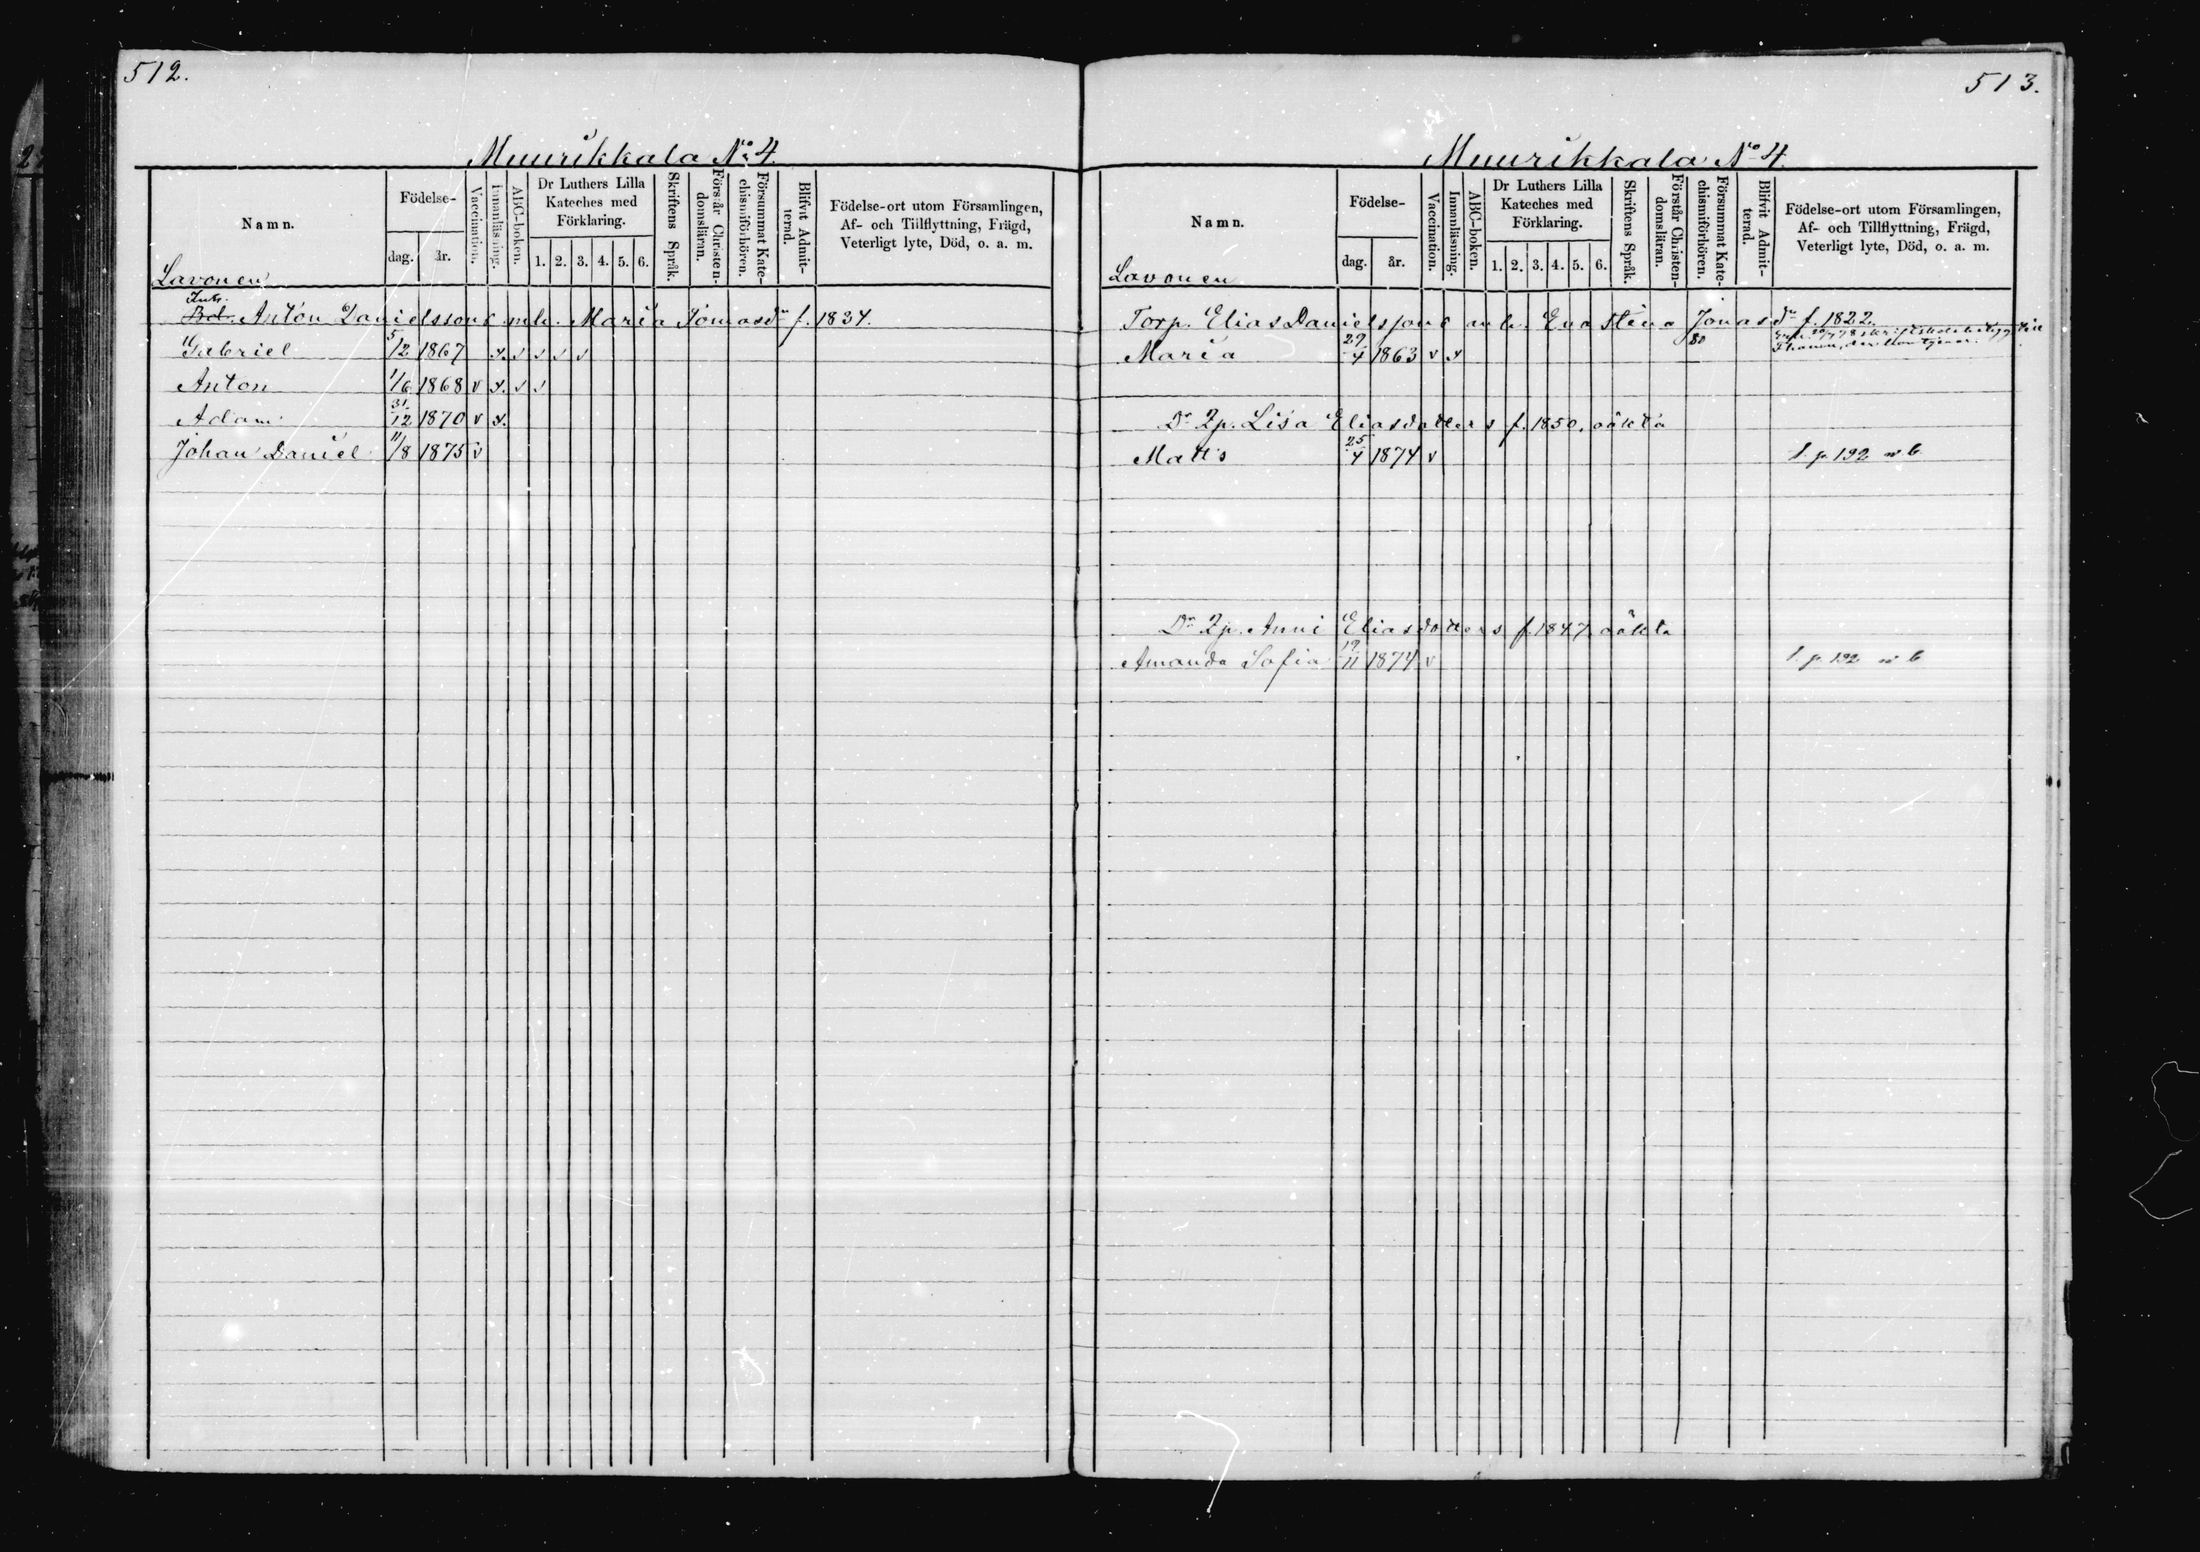 512.
Muurikkala No 4.
Namn.
Födelse-
dag.
år.
Vaccination.
Innanläsning.
ABC-boken.
Dr Luthers Lilla
Kateches med
Förklaring.
1. 2. 3. 4. 5. 6.
Skriftens Språk.
Förstår Christen-
domsläran.
Försummat Kate-
chismiförhören.
Blifvit Admit-
terad.
Födelse-ort utom Församlingen,
Af- och Tillflyttning, Frägd,
Veterligt lyte, Död, o. a. m.
Lavonen
Inh.
Bol. Anton Danielssons mh. Maria Tomasdr f. 1834.
Gabriel 5/12 1867 x. v v v v
Anton 1/6 1868 v x. v v
Adam 31/12 1870 v x.
Johan Daniel 11/8 1875 v
513.
Muurikkala No 4.
Namn.
Födelse-
dag.
år.
Vaccination.
Innanläsning.
ABC-boken.
Dr Luthers Lilla
Kateches med
Förklaring.
1. 2. 3. 4. 5. 6.
Skriftens Språk.
Förstår Christen-
domsläran.
Försummat Kate-
chismiförhören.
Blifvit Admit-
terad.
Födelse-ort utom Församlingen,
Af- och Tillflyttning, Frägd,
Veterligt lyte, Död, o. a. m.
Lavonen
Torp. Elias Danielssons enk. Eva Stina Jonasdr f. 1822.
Maria 29/4 1863 v x 80
Dr Zp. Lisa Eliasdotters f. 1850, oäkta
Matts 25/4 1874 v 1. p. 192 w b
Dr Zp. Anni Eliasdotters f. 1847 oäkta
Amanda Sofia 19/11 1874 v 1. p. 192 w b